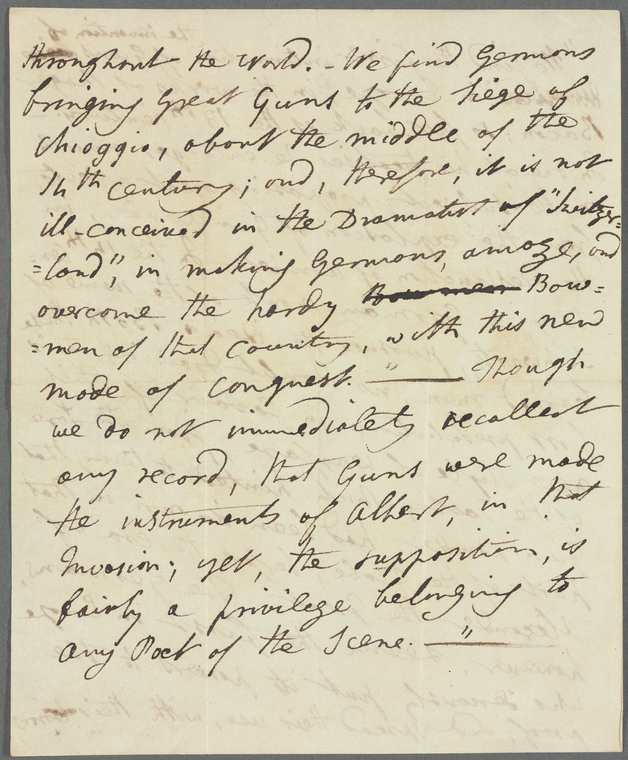 throughout the World. - We find Germans
bringing Great Guns to the Siege of
Chioggia, about the middle of the
14th Century; and, therefore, it is not
ill-conceived in the Dramatist of "Switzer=
=land", in making Germans, amaze, and
overcome the hardy Bowmen Bow=
=men of that Country, with this new
mode of Conquest. " —— Though
we do not immediately recollect
any record, that Guns were made
the instruments of Albert, in that
Invasion; yet, the supposition, is
fairly a privilege belonging to
any Poet of the Scene. — " —